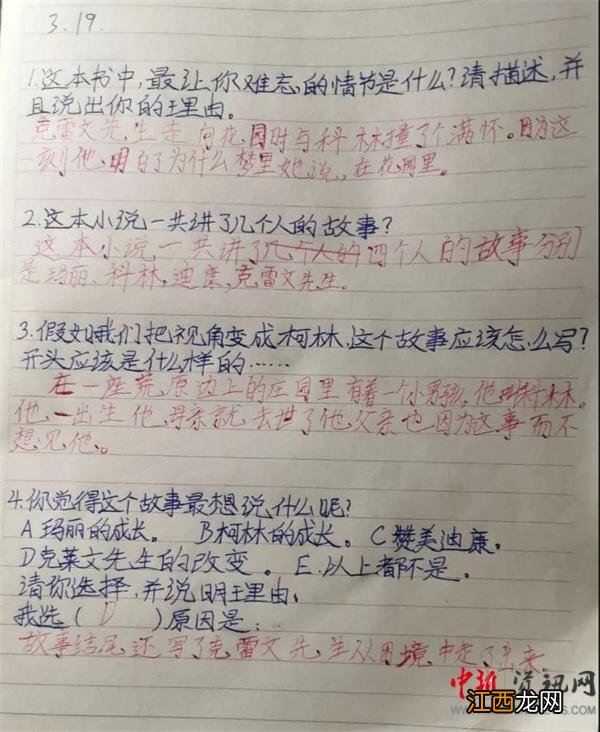 3.19.
1.这本书中,最让你难忘的情节是什么?请描述,并
且说出你的理由。
克雷文先生走向花园时与科林撞了个满怀。因为这
一刻他,明白了为什么梦里她说,在花园里。
2.这本小说一共讲了几个人的故事?
这本小说,一共讲了几个人的四个人的故事分别
是玛丽、科林,迪康,克雷文先生。
3.假如我们把视角变成柯林,这个故事应该怎么写?
开头应该是什么样的……
在一座荒原边上的庄园里有着一个小男孩,他叫科林。
他,一出生他母亲就去世了他父亲也因为这事而不
想见他。
4.你觉得这个故事最想说什么呢?
A玛丽的成长。 B柯林的成长。 C赞美迪康。
D克莱文先生的改变。 E.以上都不是。
请你选择,并说明理由,
我选( D )原因是:
故事结尾还写了克雷文先生从困境中走了出来.
中狐资讯网
江西龙网